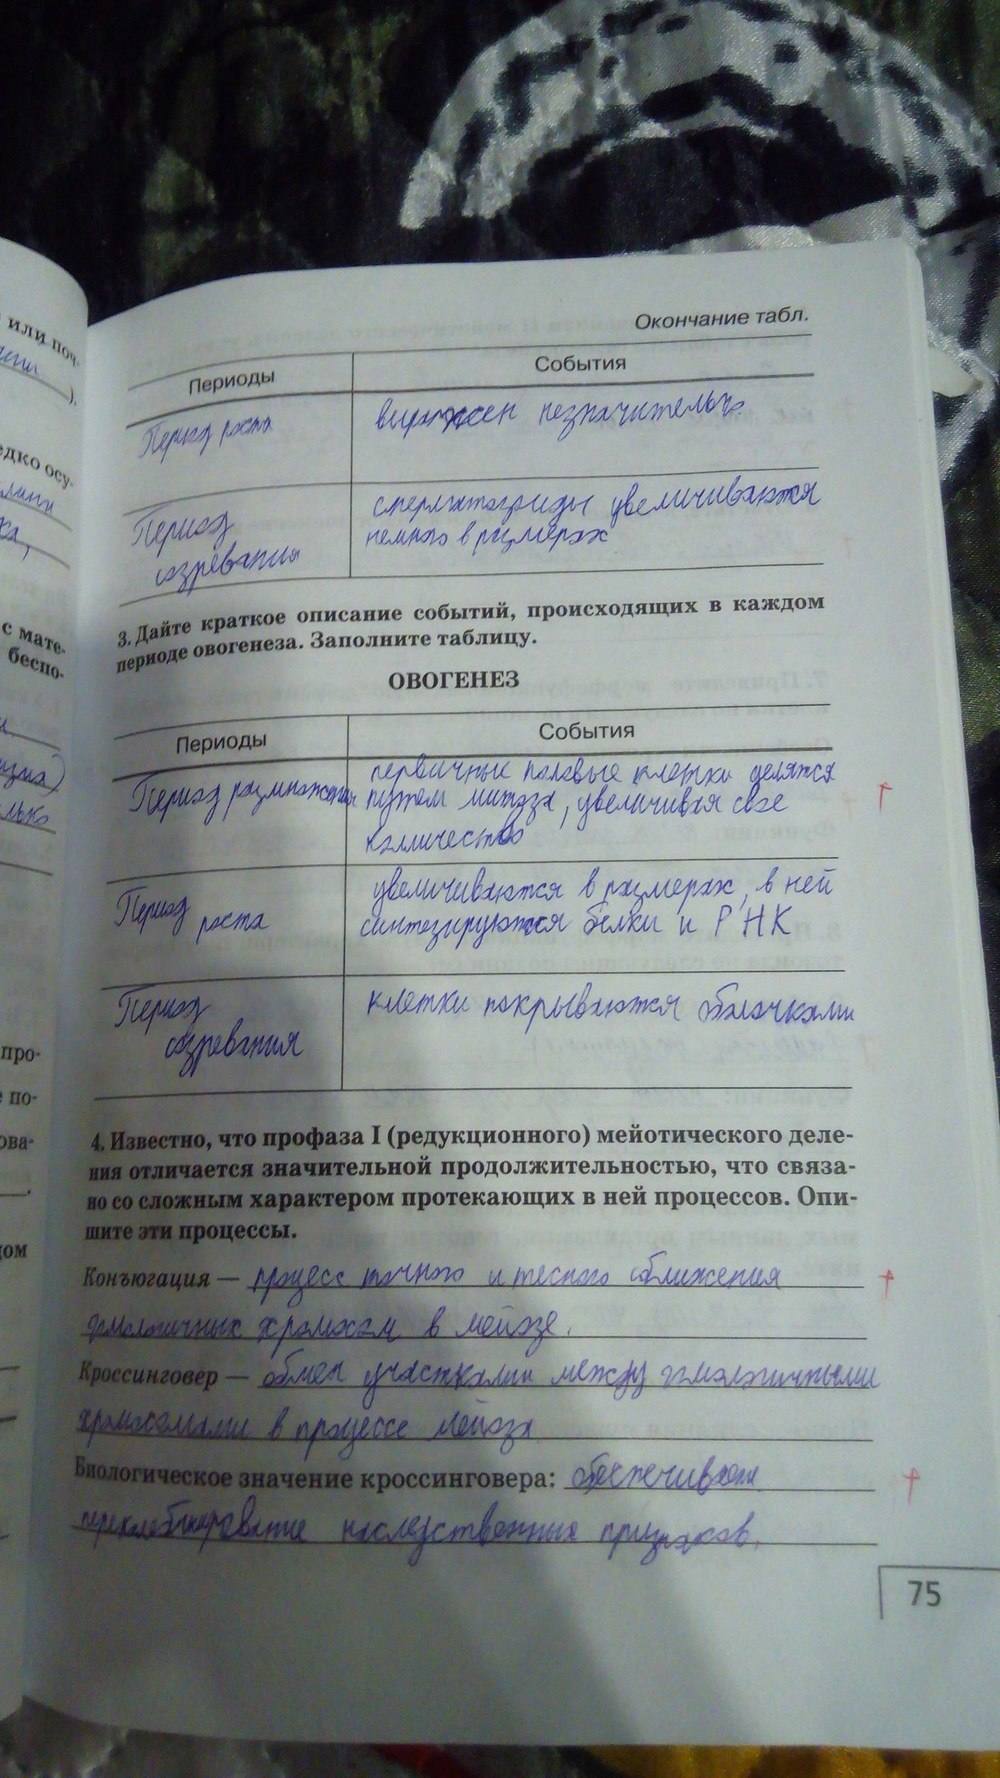 или поч-
).
едко осу-
с мате-
беспо-
про-
е по-
ова-
дом
Окончание табл.
Периоды
События
Период роста
выражен незначительно
Период
созревания
сперматогриды увеличиваются
немного в размерах
3. Дайте краткое описание событий, происходящих в каждом
периоде овогенеза. Заполните таблицу.
ОВОГЕНЕЗ
Периоды
События
Период размножения
первичные половые клетки делятся
путём митоза, увеличивая свое
колличество
Период
роста
увеличиваются в размерах, в ней
синтезируются белки и РНК
Период
созревания
клетки покрываются оболочками
4. Известно, что профаза I (редукционного) мейотического деле-
ния отличается значительной продолжительностью, что связа-
но со сложным характером протекающих в ней процессов. Опи-
шите эти процессы.
Конъюгация — процесс точного и тесного сближения
гомологичных хромосом в мейозе.
Кроссинговер — обмен участками между гомологичными
хромосомами в процессе мейоза
Биологическое значение кроссинговера: обеспечивает
перекомбинирование наследственных признаков.
75